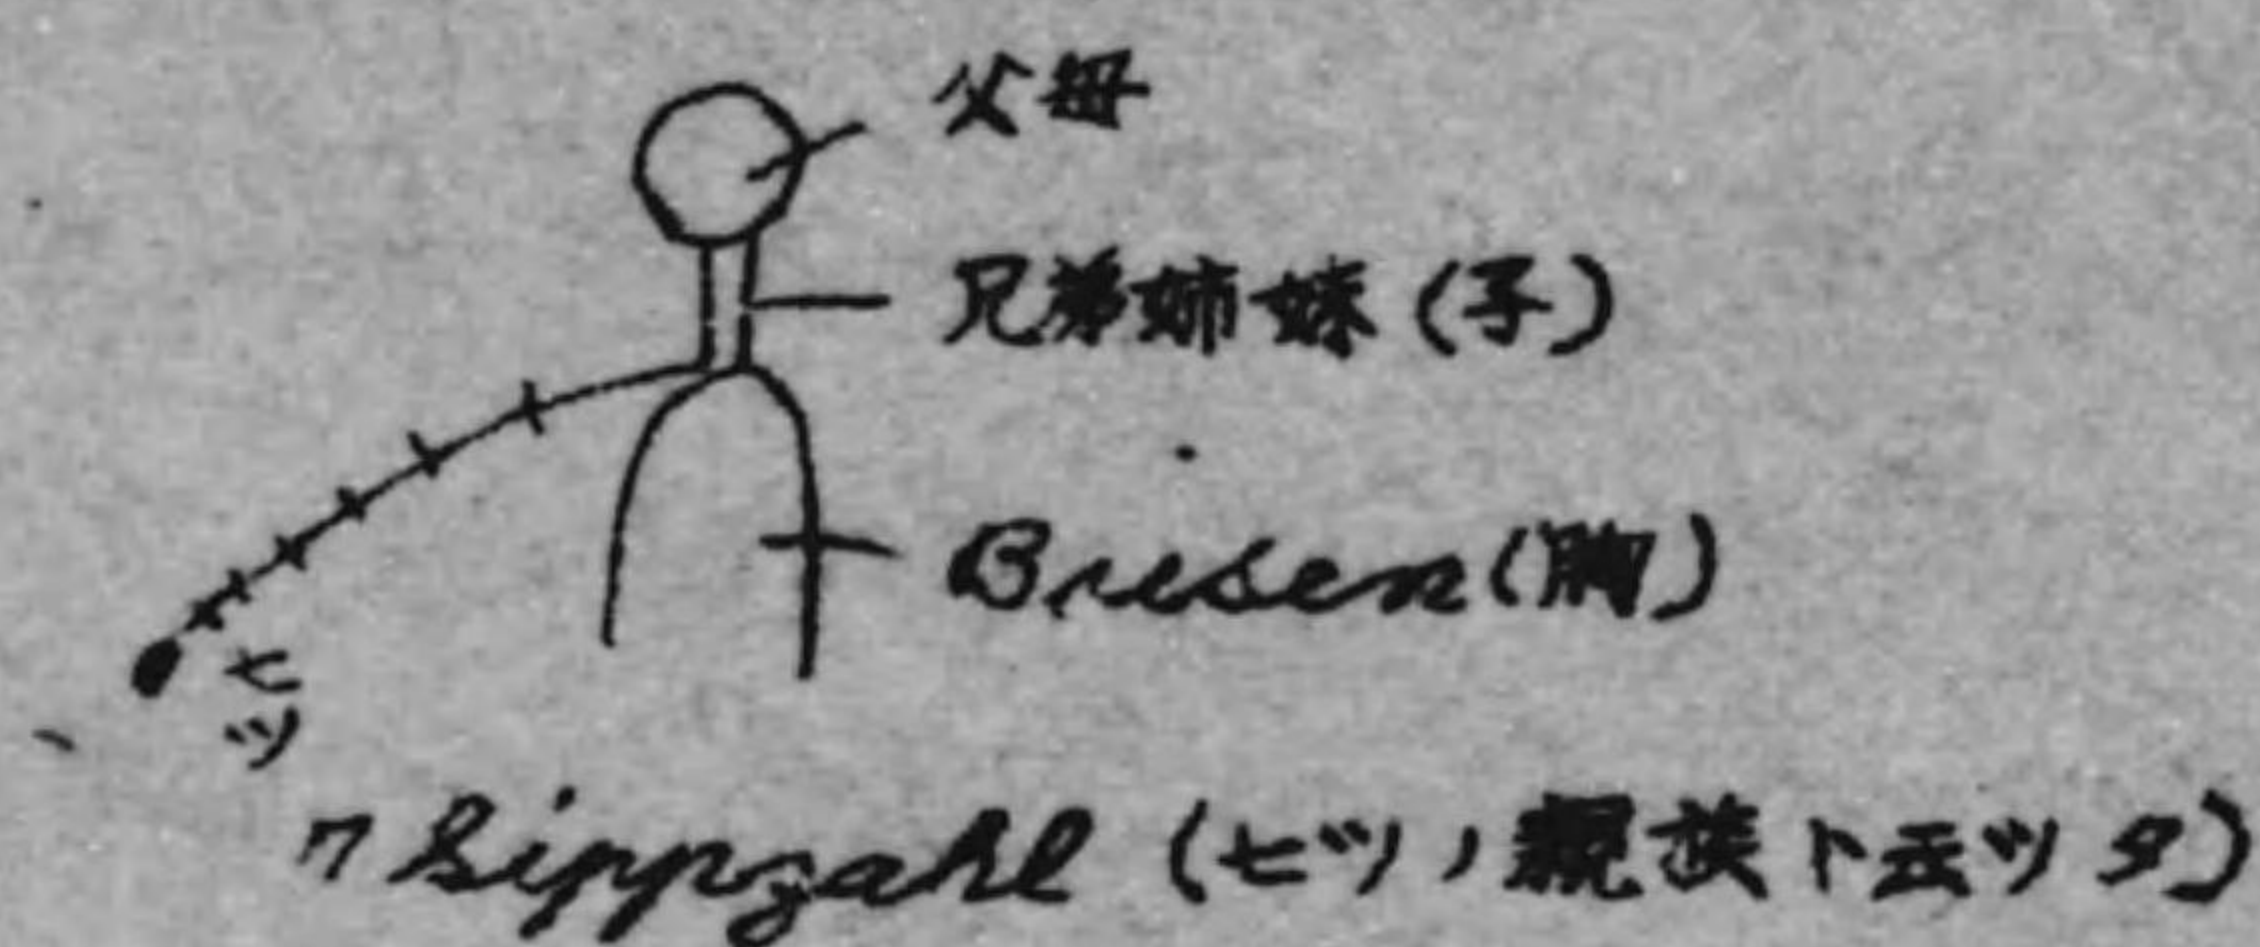 父母
兄弟姉妹(子)
Busen(胸)
七ツ
7 Sippzahl (七ツノ親族ト云ツタ)